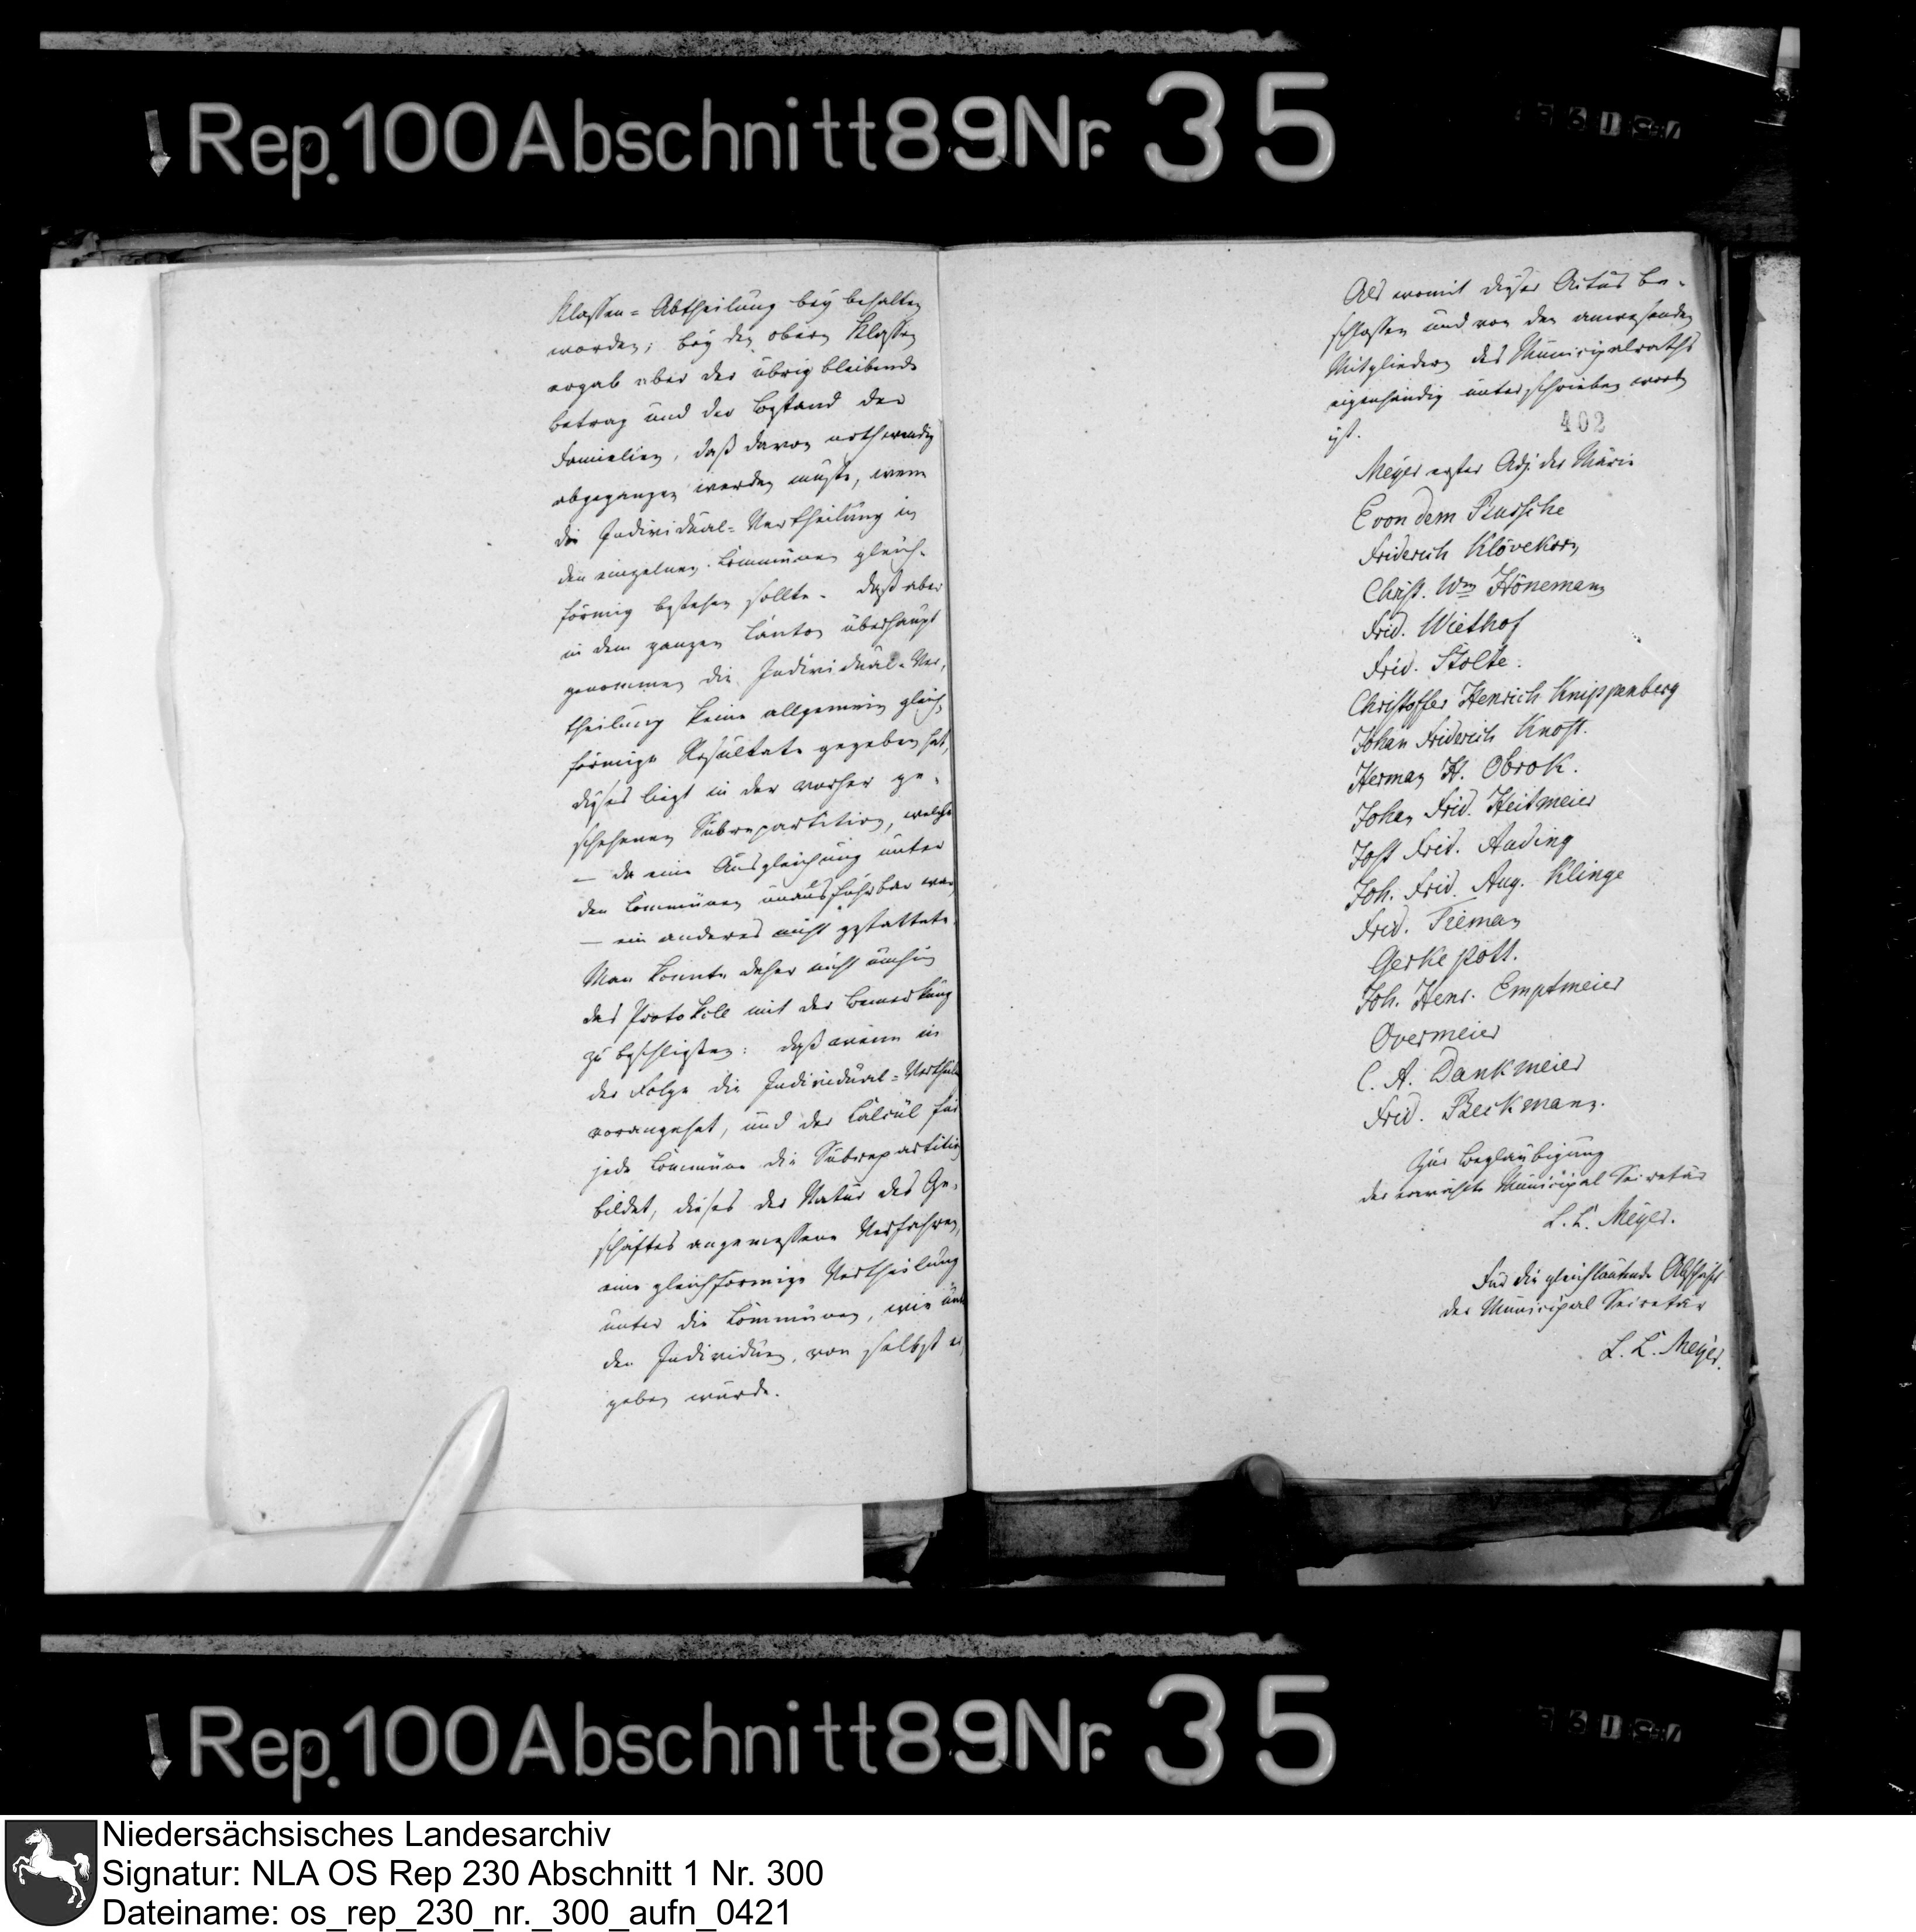 Rep. 100 Abschnitt 89 Nr. 35
Klassen-Abtheilung bey behalten
worden; bey den obern Klassen
ergab aber der übrig bleibende
Betrag und der Bestand der
Familien, daß davon nothwendig
abgegangen werden mußte, wenn
die Individual-Vertheilung in
den einzelnen Communen gleich-
förmig bestehen sollte. Daß aber
in dem ganzen Canton überhaupt
genommen die Individual-Ver-
theilung keine allgemein gleich-
förmige Resultate gegeben hat,
dieses liegt in der vorher ge-
schehenen Subrepartition, welche
— da eine Ausgleichung unter
den Communen unausführbar war,
— ein anderes nicht gestattete.
Man konnte daher nicht umhin
das Protokoll mit der Bemerkung
zu beschließen: daß wenn in
der Folge die Individual-Vertheilu
vorangehet, und der Calcul für
jede Commüne die Subrepartition
bildet, dieses der Natur des Ge-
schäftes angemessene Verfahren,
eine gleichförmige Vertheilung
unter die Communen, wie unter
den Individuen, von selbst er-
geben würde.
Als womit dieser Actus be-
schlossen und von den anwesenden
Mitgliedern des Municipalraths
eigenhändig unterschrieben worden
ist.
402
Meyer erster Adj. des Märie
E von dem Bussche
Friderich Klövekorn
Christ. Wm Hönemann
Frid. Wiethof
Frid. Stolte.
Christoffer Henrich Knippenberg
Johan Friderich Knost.
Herman H. Obrok.
Johan Frid. Heitmeier
Jost Frid. Auding
Joh. Frid. Aug. Klinge
Frid. Tieman
Gerke Pott.
Joh. Henr. Emptmeier
Overmeier
C. A. Dankmeier
Frid. Beckmann.
Zur Beglaubigung
der Municipal Secretär
L. C. Meyer.
Für die gleichlautende Abschrift
der Municipal Secretär
L. C. Meyer.
Rep. 100 Abschnitt 89 Nr. 35
Niedersächsisches Landesarchiv
Signatur: NLA OS Rep 230 Abschnitt 1 Nr. 300
Dateiname: os_rep_230_nr._300_aufn_0421